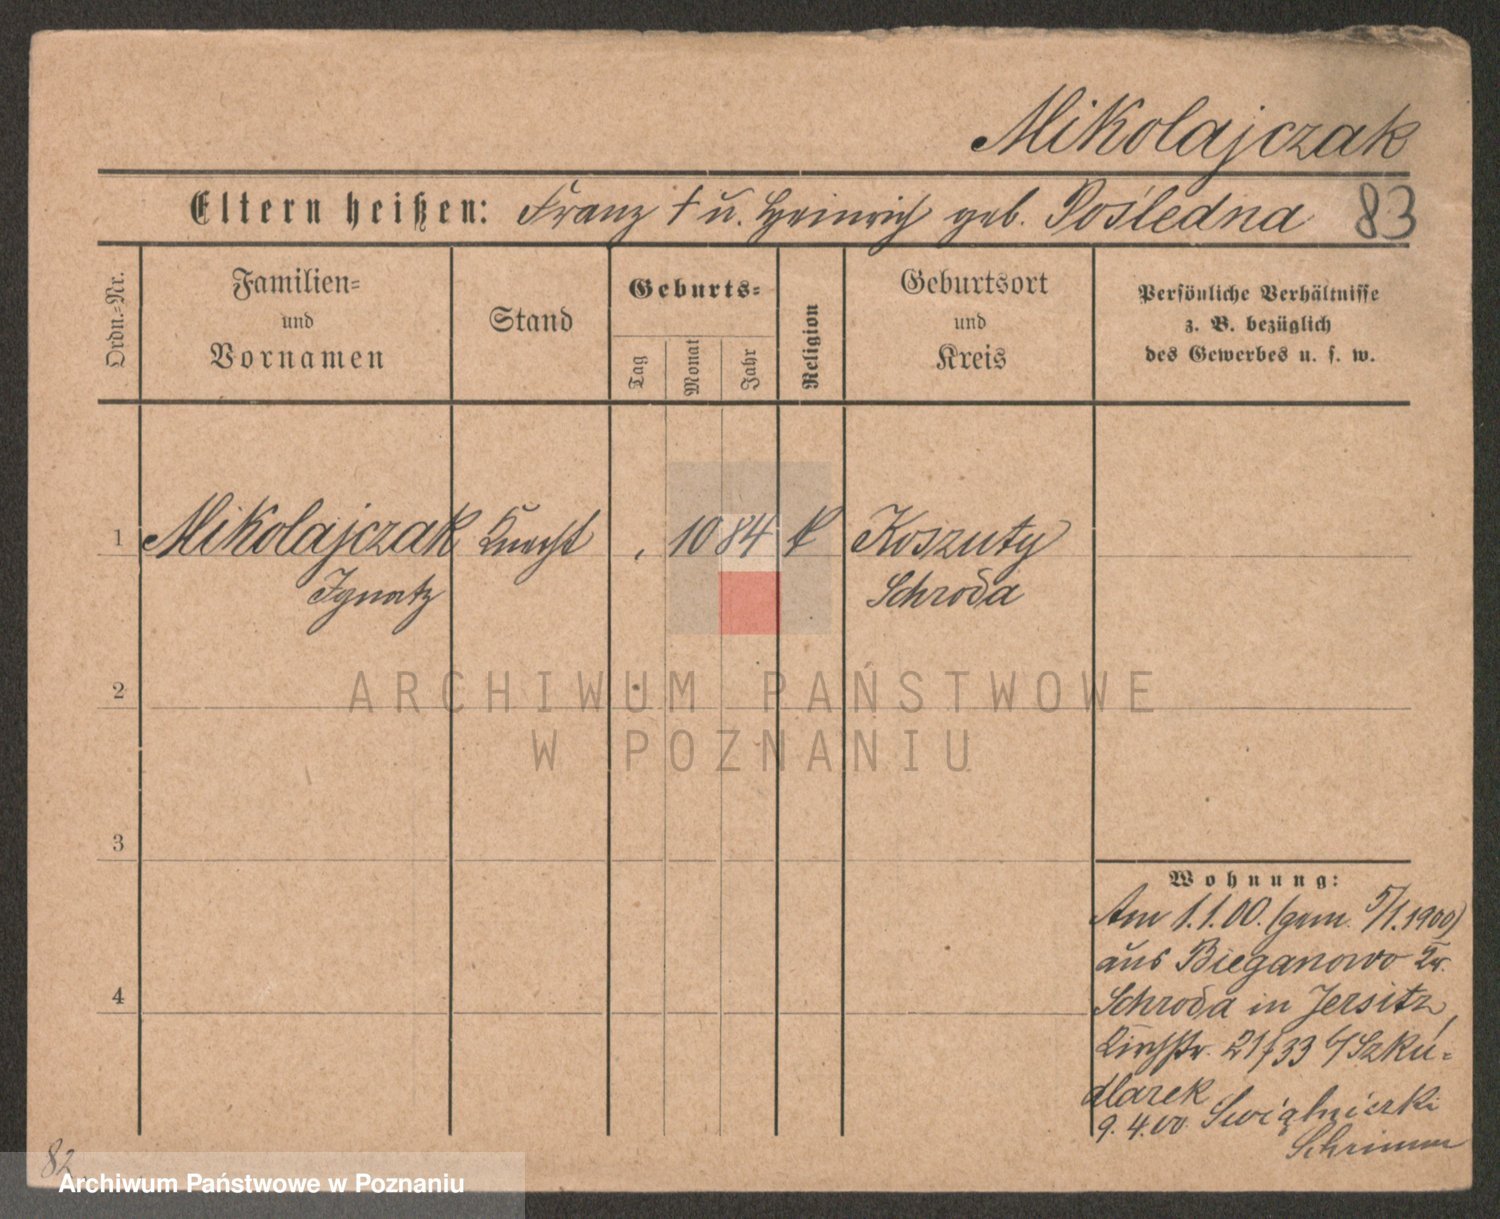 Mikolajczak
Eltern heißen: Franz † u. geb. Pośledna 83
Ordn.-Nr.
Familien=
und
Vornamen
Stand
Geburts=
Tag
Monat
Jahr
Religion
Geburtsort
und
Kreis
Persönliche Verhältnisse
z. B. bezüglich
des Gewerbes u. s. w.
1 Mikolajczak Knecht . 10 84 k Koszuty
Ignatz Schroda
2
3
4
Wohnung:
Am 1.1.00. (gem. 5/1.1900)
aus Bieganowo Kr.
Schroda in Jersitz,
Kirchstr. 21/33 b/Szku=
dlarek
9.4.00. Swiątniczki
Schrimm
82
ARCHIWUM PAŃSTWOWE
W POZNANIU
Archiwum Państwowe w Poznaniu